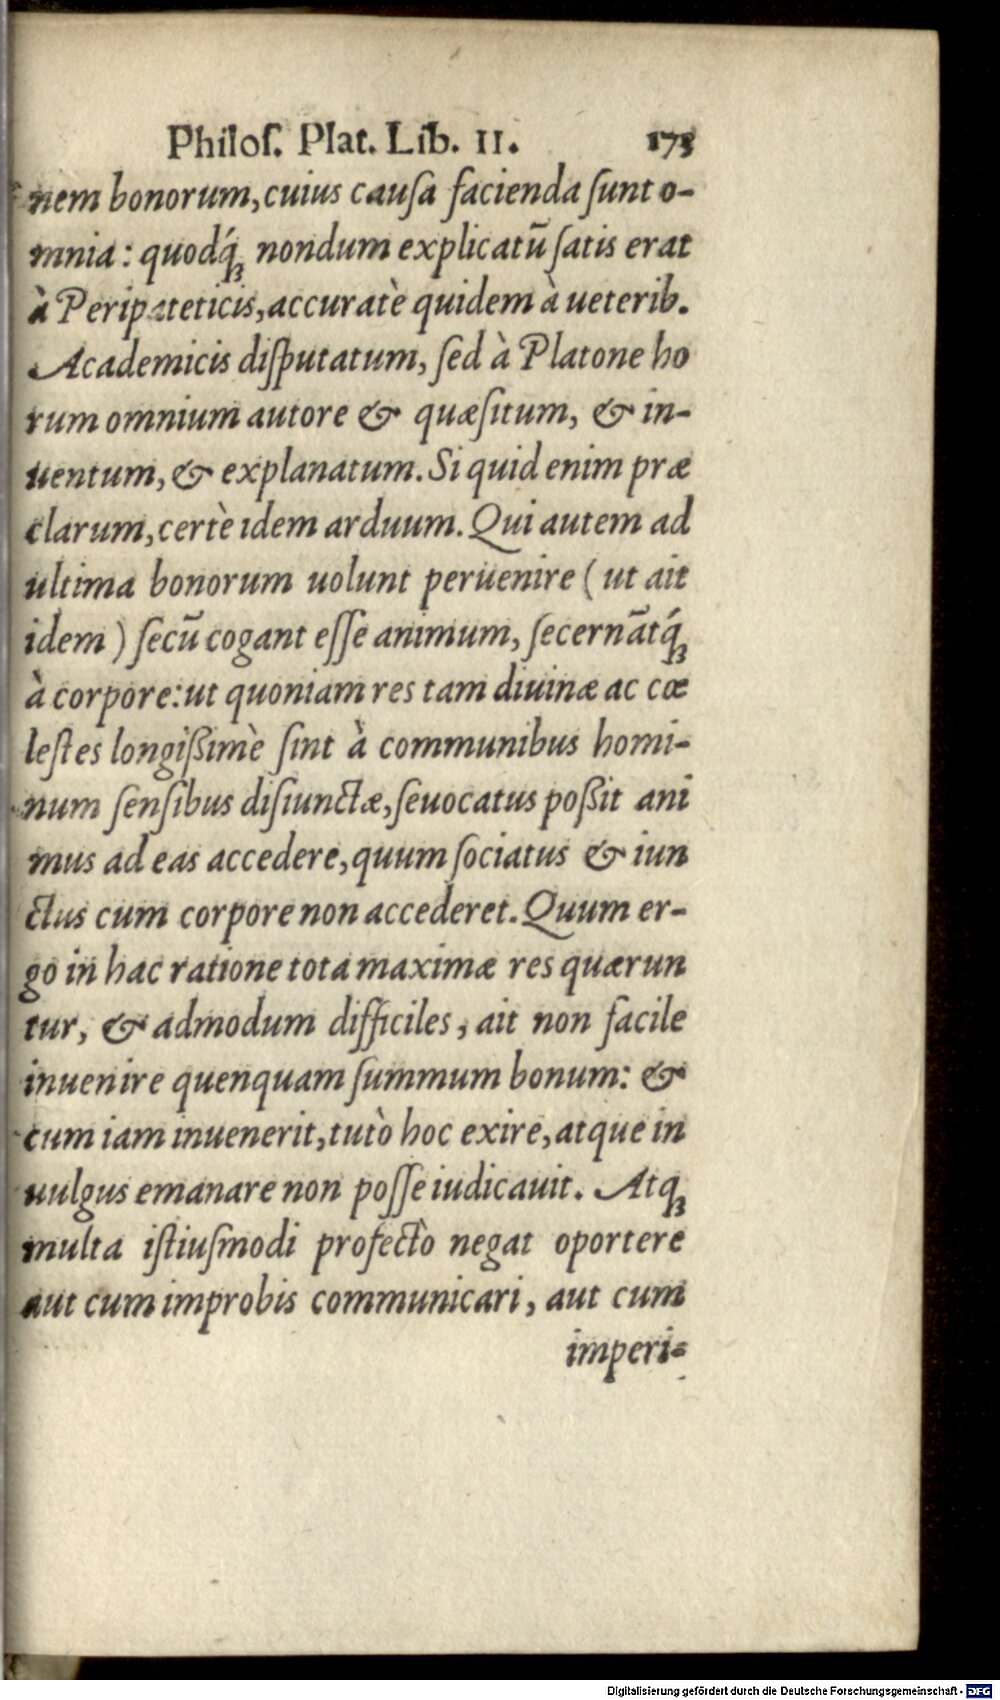 Philoſ. Plat. Lib. II. 173
nem bonorum,cuius cauſa facienda ſunt o-
mnia: quodq́ꝫ nondum explicatū ſatis erat
à Peripateticis,accuratè quidem à ueterib.
Academicis diſputatum, ſed à Platone ho
rum omnium autore & quæſitum, & in-
uentum, & explanatum. Si quid enim præ
clarum,certè idem arduum. Qui autem ad
ultima bonorum uolunt peruenire ( ut ait
idem ) ſecū cogant eſſe animum, ſecernātq́ꝫ
à corpore:ut quoniam res tam diuinæ ac cœ
leſtes longißimè ſint à communibus homi-
num ſenſibus diſiunctæ,ſeuocatus poßit ani
mus ad eas accedere,quum ſociatus & iun
ctus cum corpore non accederet. Quum er-
go in hac ratione tota maximæ res quærun
tur, & admodum difficiles, ait non facile
inuenire quenquam ſummum bonum: &
cum iam inuenerit,tutò hoc exire,atque in
uulgus emanare non poſſe iudicauit. Atqꝫ
multa iſtiuſmodi profectò negat oportere
aut cum improbis communicari, aut cum
imperi-
Digitalisierung gefördert durch die Deutsche Forschungsgemeinschaft - DFG